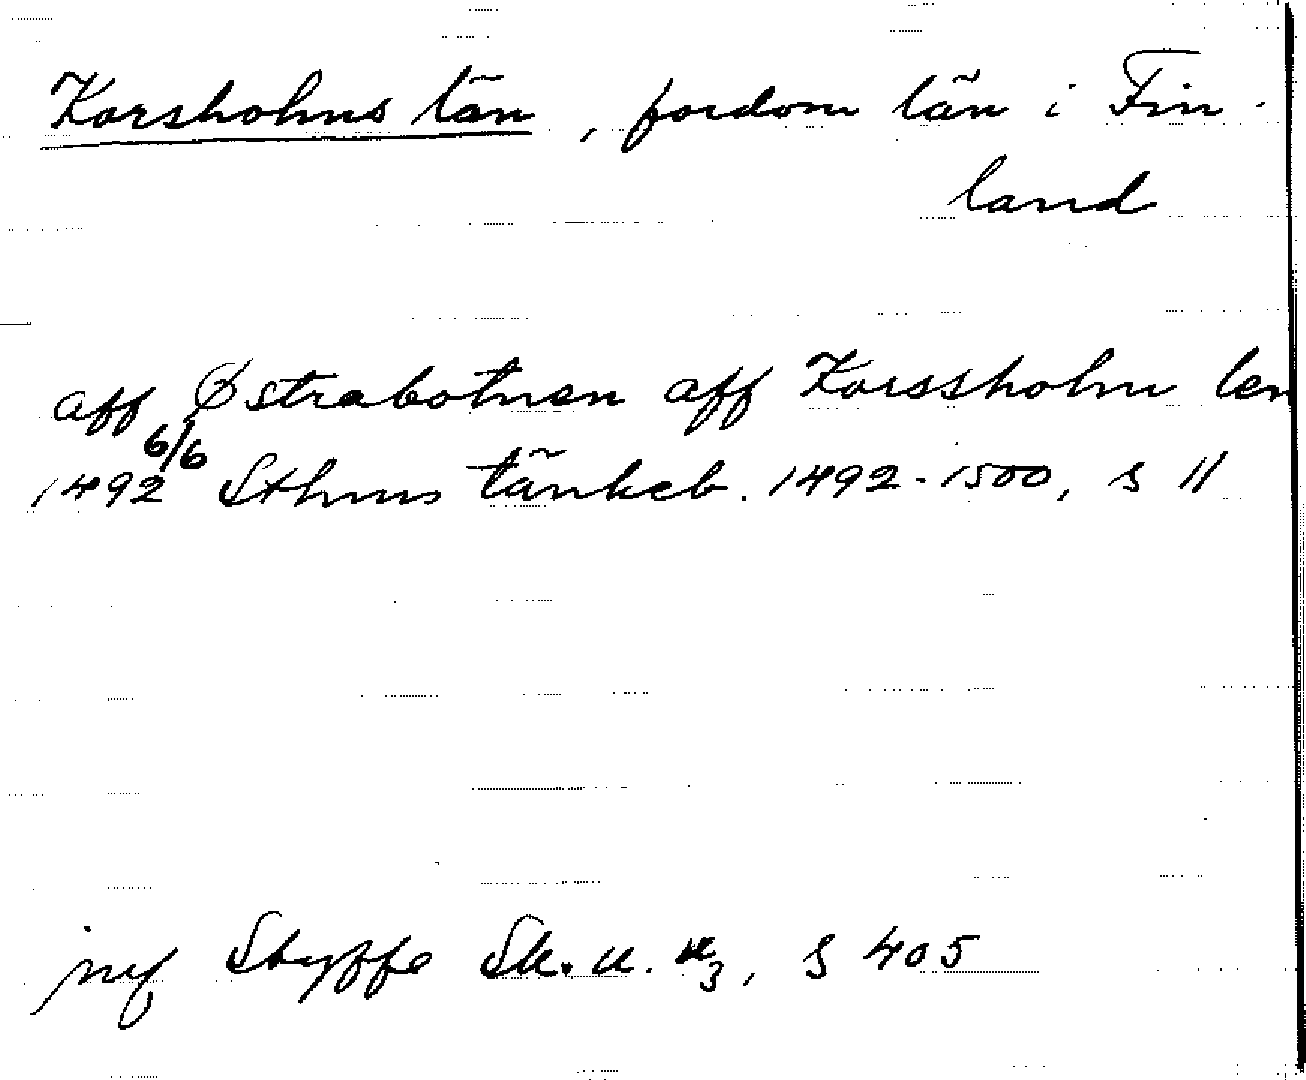 Korsholms län, fordom län i Fin-
land
aff Østrabotnen aff Korssholm len
1492 6/6 Sthms tänkeb. 1492-1500, s 11
jmf Styffe Sk. u. u3, s 405